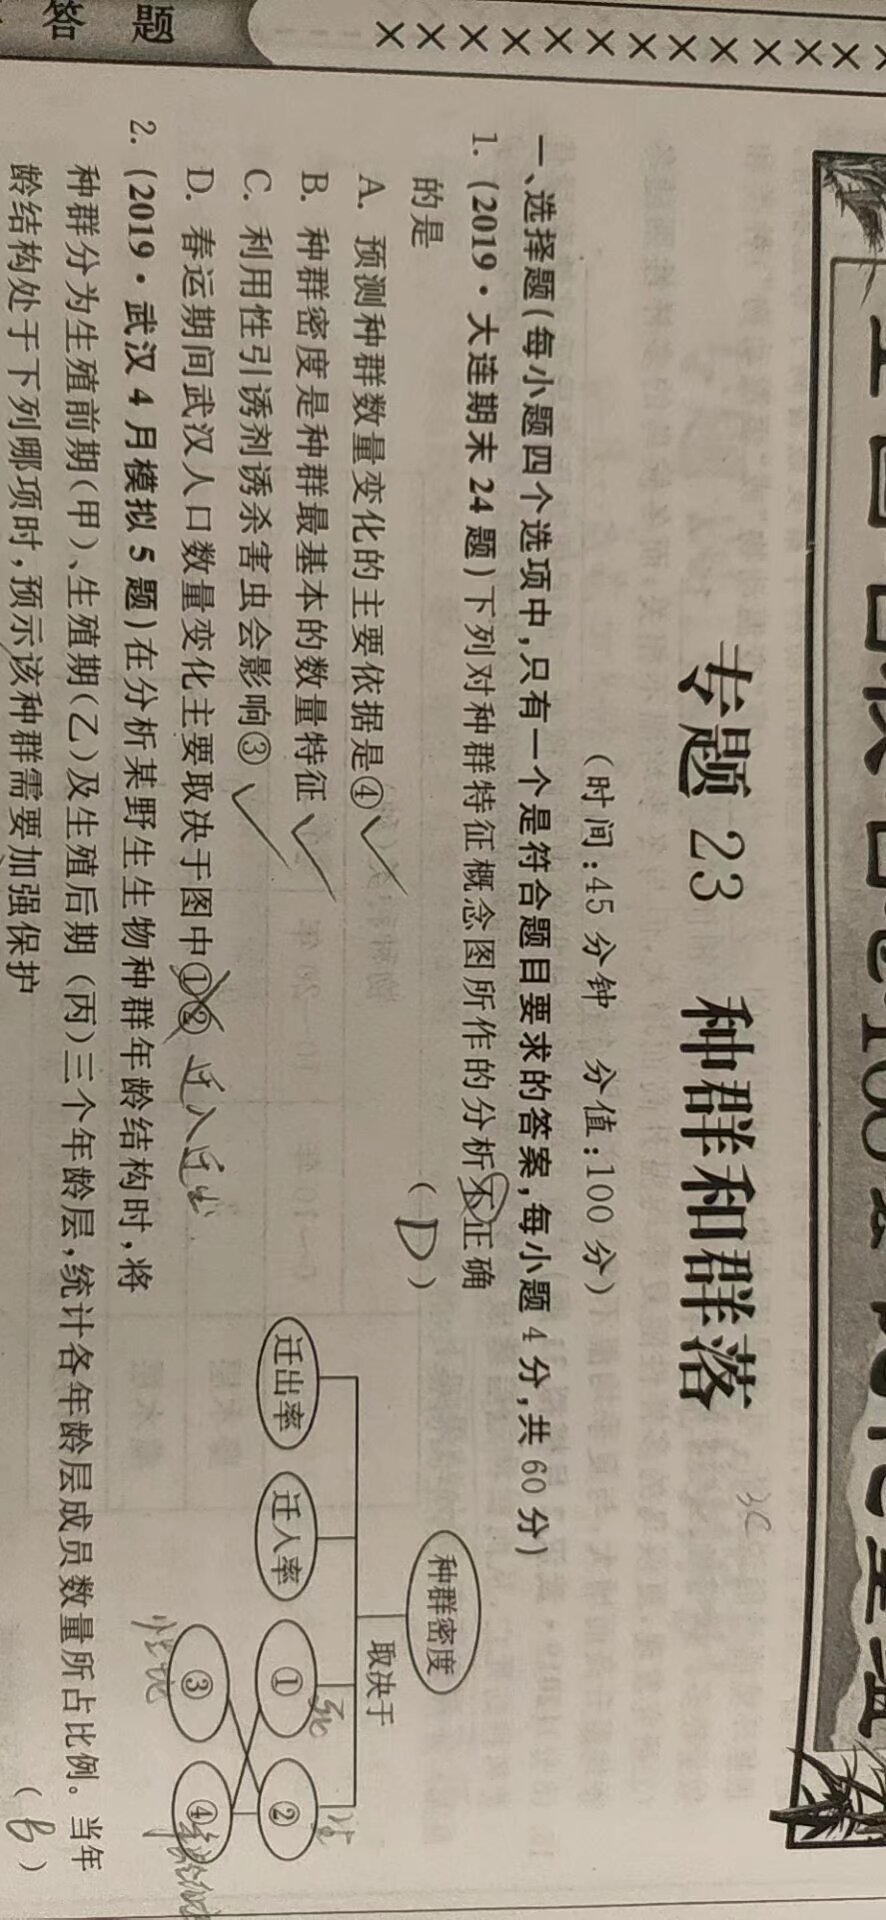 答 题
× × × × × × × × × × × ×
专题 23 种群和群落
(时间:45 分钟 分值:100 分)
一、选择题(每小题四个选项中,只有一个是符合题目要求的答案,每小题 4 分,共 60 分)
1. (2019·大连期末 24 题)下列对种群特征概念图所作的分析不正确
的是 ( D )
A. 预测种群数量变化的主要依据是④
B. 种群密度是种群最基本的数量特征
C. 利用性引诱剂诱杀害虫会影响③
D. 春运期间武汉人口数量变化主要取决于图中①② 迁入迁出
种群密度
取决于
迁出率 迁入率 ① 死 ② 生
③ 性比 ④ 年龄
2. (2019·武汉 4 月模拟 5 题)在分析某野生生物种群年龄结构时,将
种群分为生殖前期(甲)、生殖期(乙)及生殖后期(丙)三个年龄层,统计各年龄层成员数量所占比例。当年
龄结构处于下列哪项时,预示该种群需要加强保护 ( B )